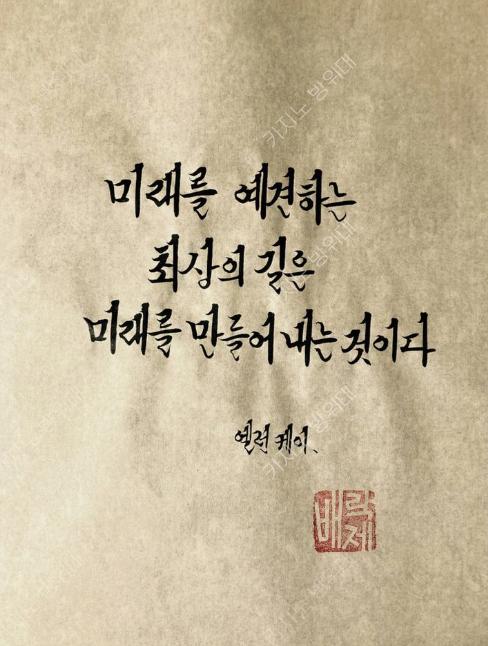 미래를 예견하는
최상의 길은
미래를 만들어 내는 것이다
엘런 케이.
카지노 방위대
카지노 방위대
카지노 방위대